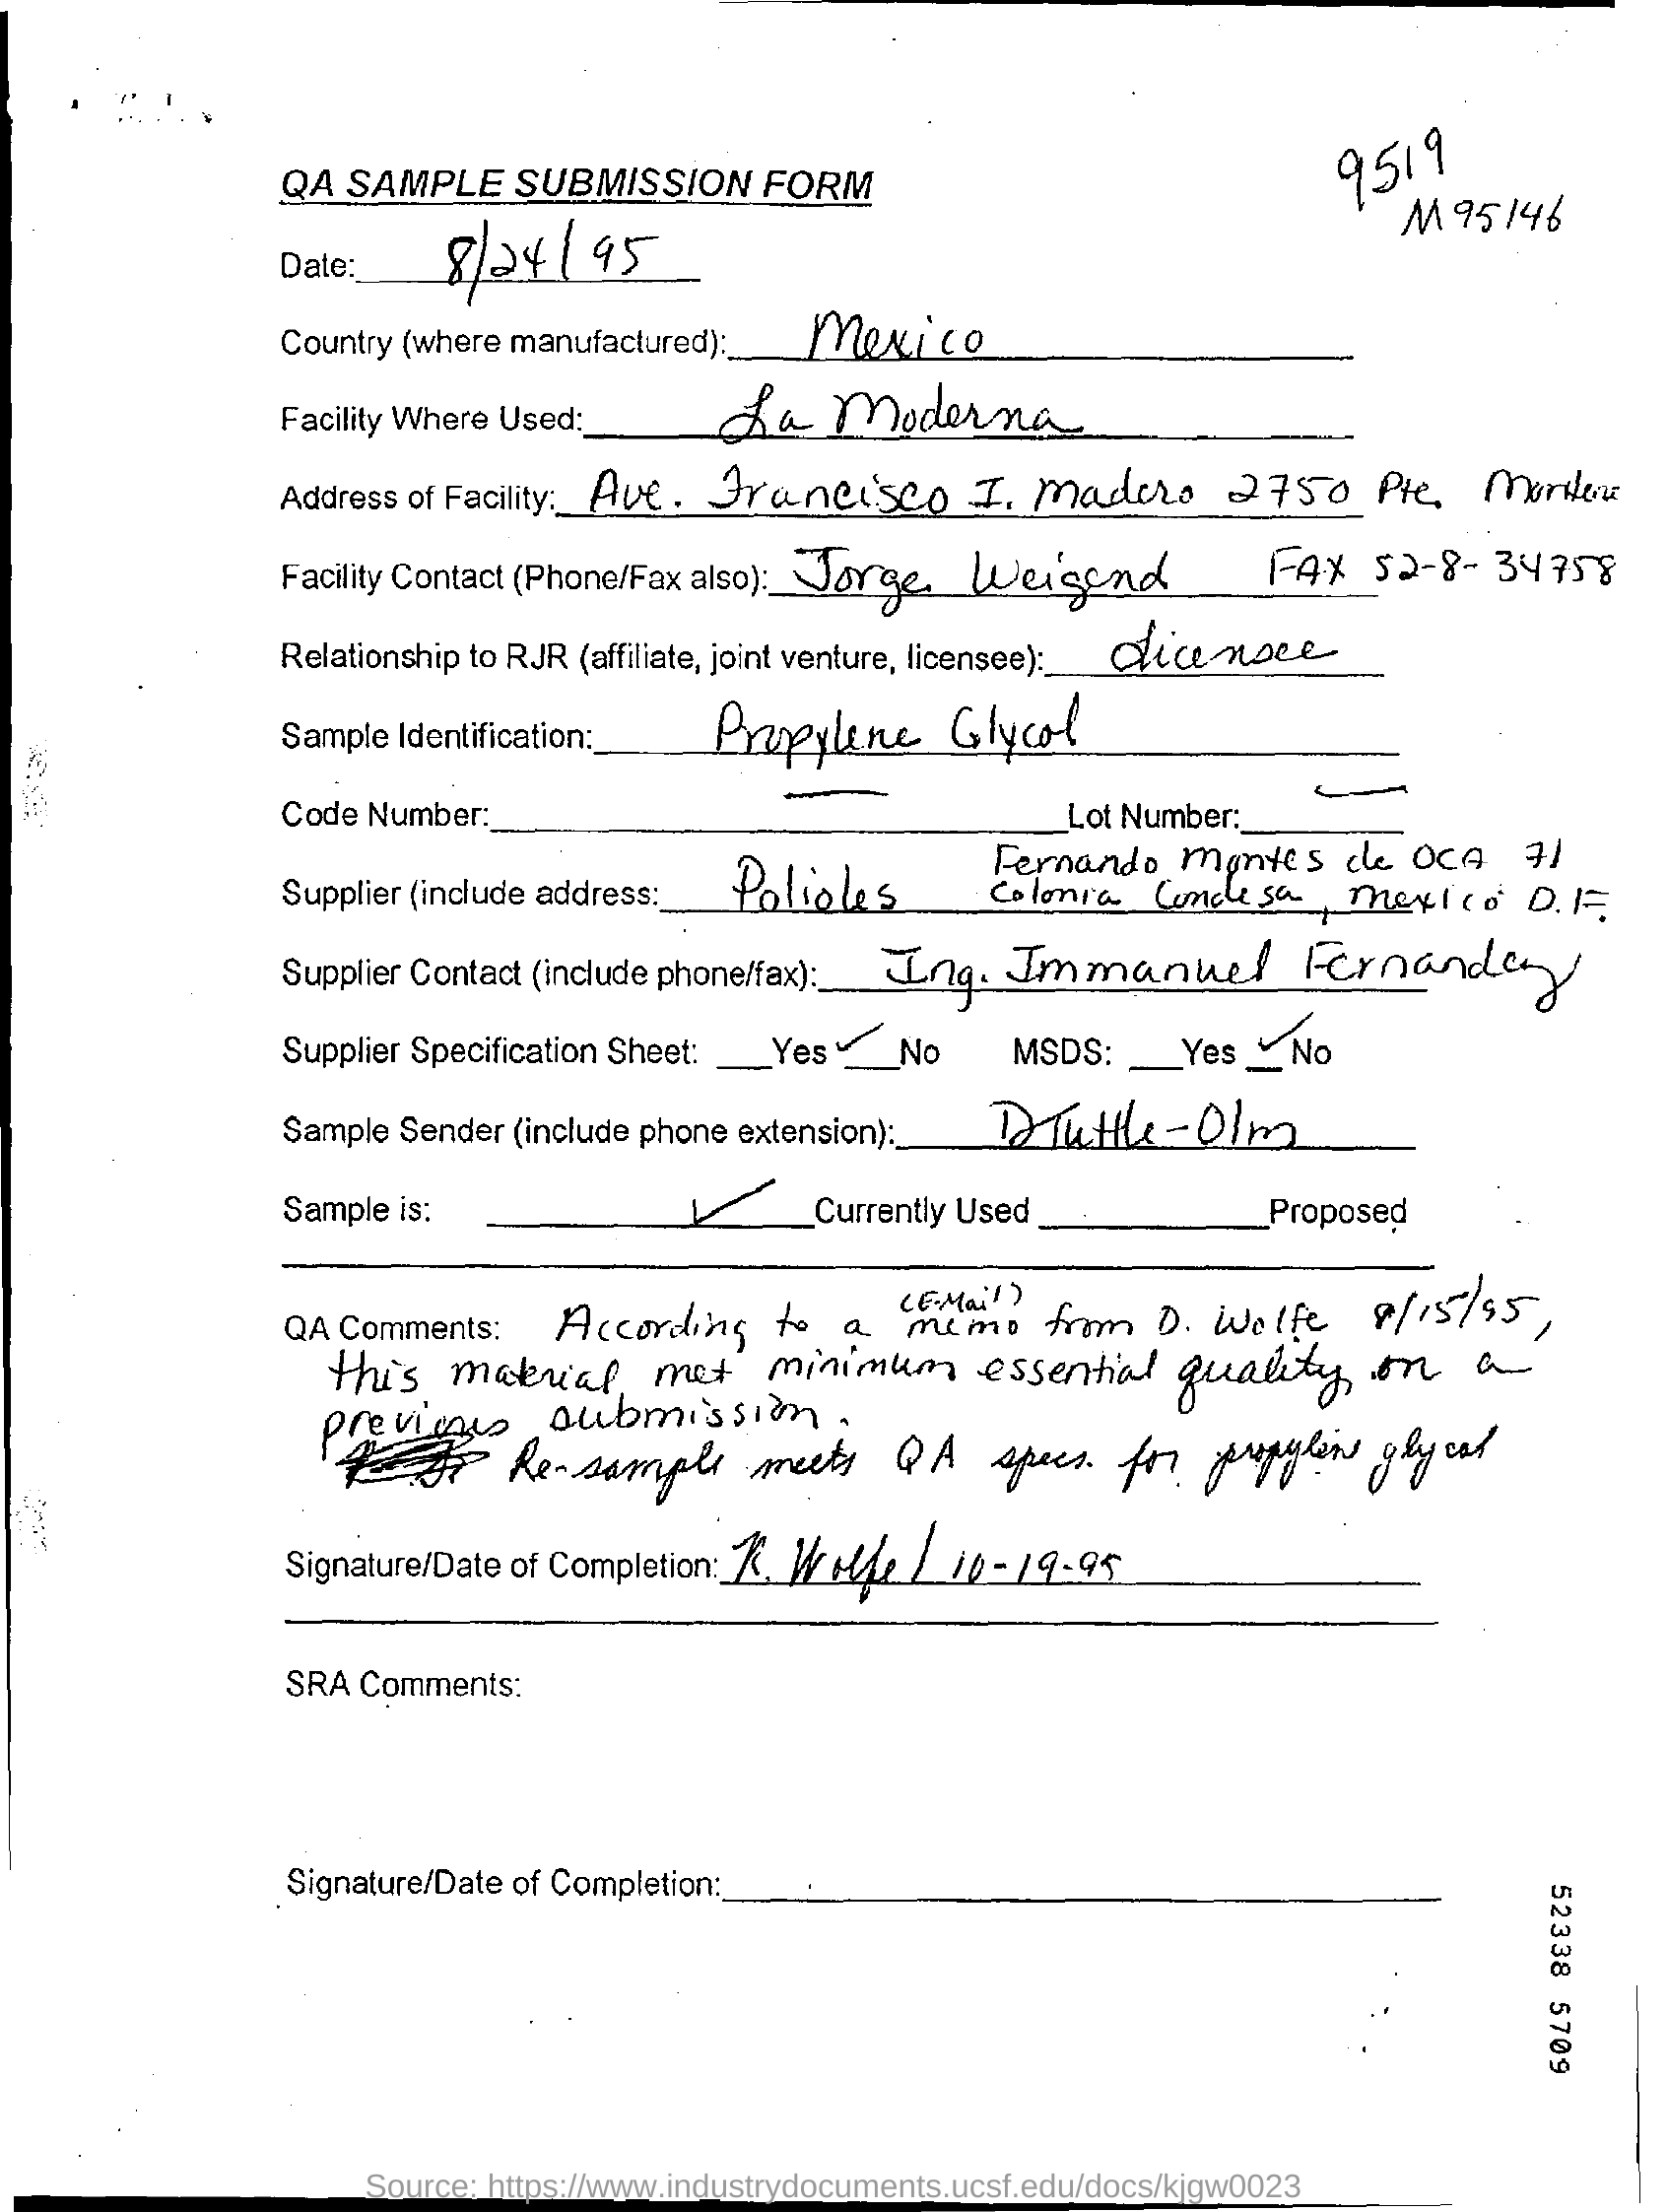 9519
M95146
QA SAMPLE SUBMISSION FORM
Date: 8/24/95
Country (where manufactured): Mexico
Facility Where Used: La Moderna
Address of Facility: Ave. Francisco I. Madero 2750 Pte.
Facility Contact (Phone/Fax also): Jorge Weigend FAX 52-8-34758
Relationship to RJR (affiliate, joint venture, licensee): Licensee
Sample Identification: Propylene Glycol
Code Number: — Lot Number: —
Fernando Montes de OCA 71
Supplier (include address: Polioles Colonia Condesa, Mexico D.F.
Supplier Contact (include phone/fax): Ing. Immanuel Fernandez
Supplier Specification Sheet: __Yes ✓ No MSDS: __Yes ✓ No
Sample Sender (include phone extension): DTuttle-Olm
Sample is: ✓ Currently Used ____ Proposed
(E-Mail)
QA Comments: According to a memo from D. Wolfe 8/15/95,
this material met minimum essential quality on a
previous submission.
Re-sample meets QA specs. for propylene glycol
Signature/Date of Completion: K. Wolfe / 10-19-95
SRA Comments:
Signature/Date of Completion:
52338 5709
Source: https://www.industrydocuments.ucsf.edu/docs/kjgw0023